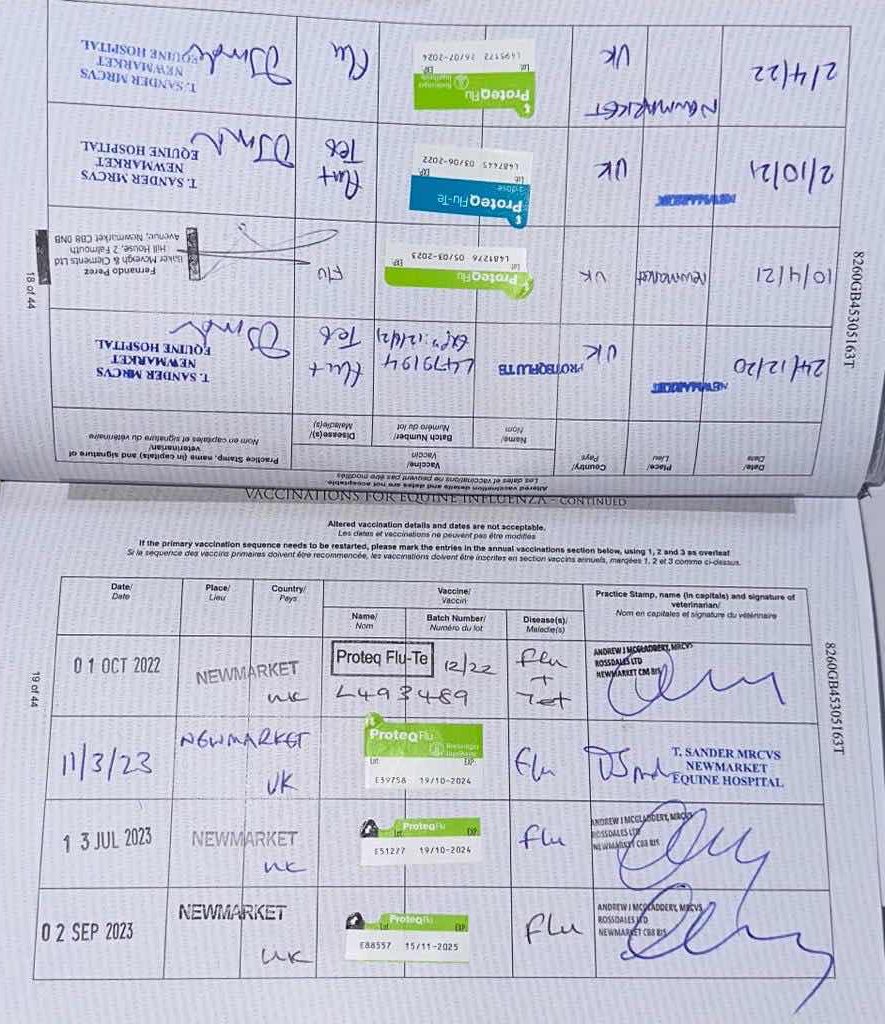 Altered vaccination details and dates are not acceptable.
Les dates et vaccinations ne peuvent pas être modifiés
Date/
Date
Place/
Lieu
Country/
Pays
Vaccine/
Vaccin
Name/
Nom
Batch Number/
Numéro du lot
Disease(s)/
Maladie(s)
Practice Stamp, name (in capitals) and signature of
veterinarian/
Nom en capitales et signature du vétérinaire
24/12/20
NEWMARKET
UK
PROTEQFLUTE
L479194
12/4/21
Flu +
Tet
T. SANDER MRCVS
NEWMARKET
EQUINE HOSPITAL
10/4/21
Newmarket
UK
ProteqFlu
Lot
EXP
L481276 05/03-2023
FLU
Fernando Perez
Baker Mcveigh & Clements Ltd
Hill House, 2 Falmouth
Avenue, Newmarket CB8 0NB
2/10/21
NEWMARKET
UK
ProteqFlu-Te
1 dose
Lot
EXP
L487445 03/06-2022
Flu+
Tet
T. SANDER MRCVS
NEWMARKET
EQUINE HOSPITAL
2/4/22
NEWMARKET
UK
ProteqFlu
Boehringer
Ingelheim
Lot
EXP
L495172 26/07-2024
Flu
T. SANDER MRCVS
NEWMARKET
EQUINE HOSPITAL
18 of 44
8260GB45305163T
VACCINATIONS FOR EQUINE INFLUENZA – CONTINUED
Altered vaccination details and dates are not acceptable.
Les dates et vaccinations ne peuvent pas être modifiés
If the primary vaccination sequence needs to be restarted, please mark the entries in the annual vaccinations section below, using 1, 2 and 3 as overleaf
Si la sequence des vaccins primaires doivent être recommencée, les vaccinations doivent être inscrites en section vaccins annuels, marqées 1, 2 et 3 comme ci-dessus.
Date/
Date
Place/
Lieu
Country/
Pays
Vaccine/
Vaccin
Name/
Nom
Batch Number/
Numéro du lot
Disease(s)/
Maladie(s)
Practice Stamp, name (in capitals) and signature of
veterinarian/
Nom en capitales et signature du vétérinaire
01 OCT 2022
NEWMARKET
UK
Proteq Flu-Te
12/22
L493489
Flu
+
Tet
ANDREW J MCGLADDERY, MRCVS
ROSSDALES LTD
NEWMARKET CB8 8JS
11/3/23
NEWMARKET
UK
ProteqFlu
Boehringer
Ingelheim
Lot
EXP
E39758 19/10-2024
Flu
T. SANDER MRCVS
NEWMARKET
EQUINE HOSPITAL
13 JUL 2023
NEWMARKET
UK
ProteqFlu
Lot
EXP
E51277 19/10-2024
Flu
ANDREW J MCGLADDERY, MRCVS
ROSSDALES LTD
NEWMARKET CB8 8JS
02 SEP 2023
NEWMARKET
UK
ProteqFlu
Lot
EXP
E88557 15/11-2025
Flu
ANDREW J MCGLADDERY, MRCVS
ROSSDALES LTD
NEWMARKET CB8 8JS
19 of 44
8260GB45305163T